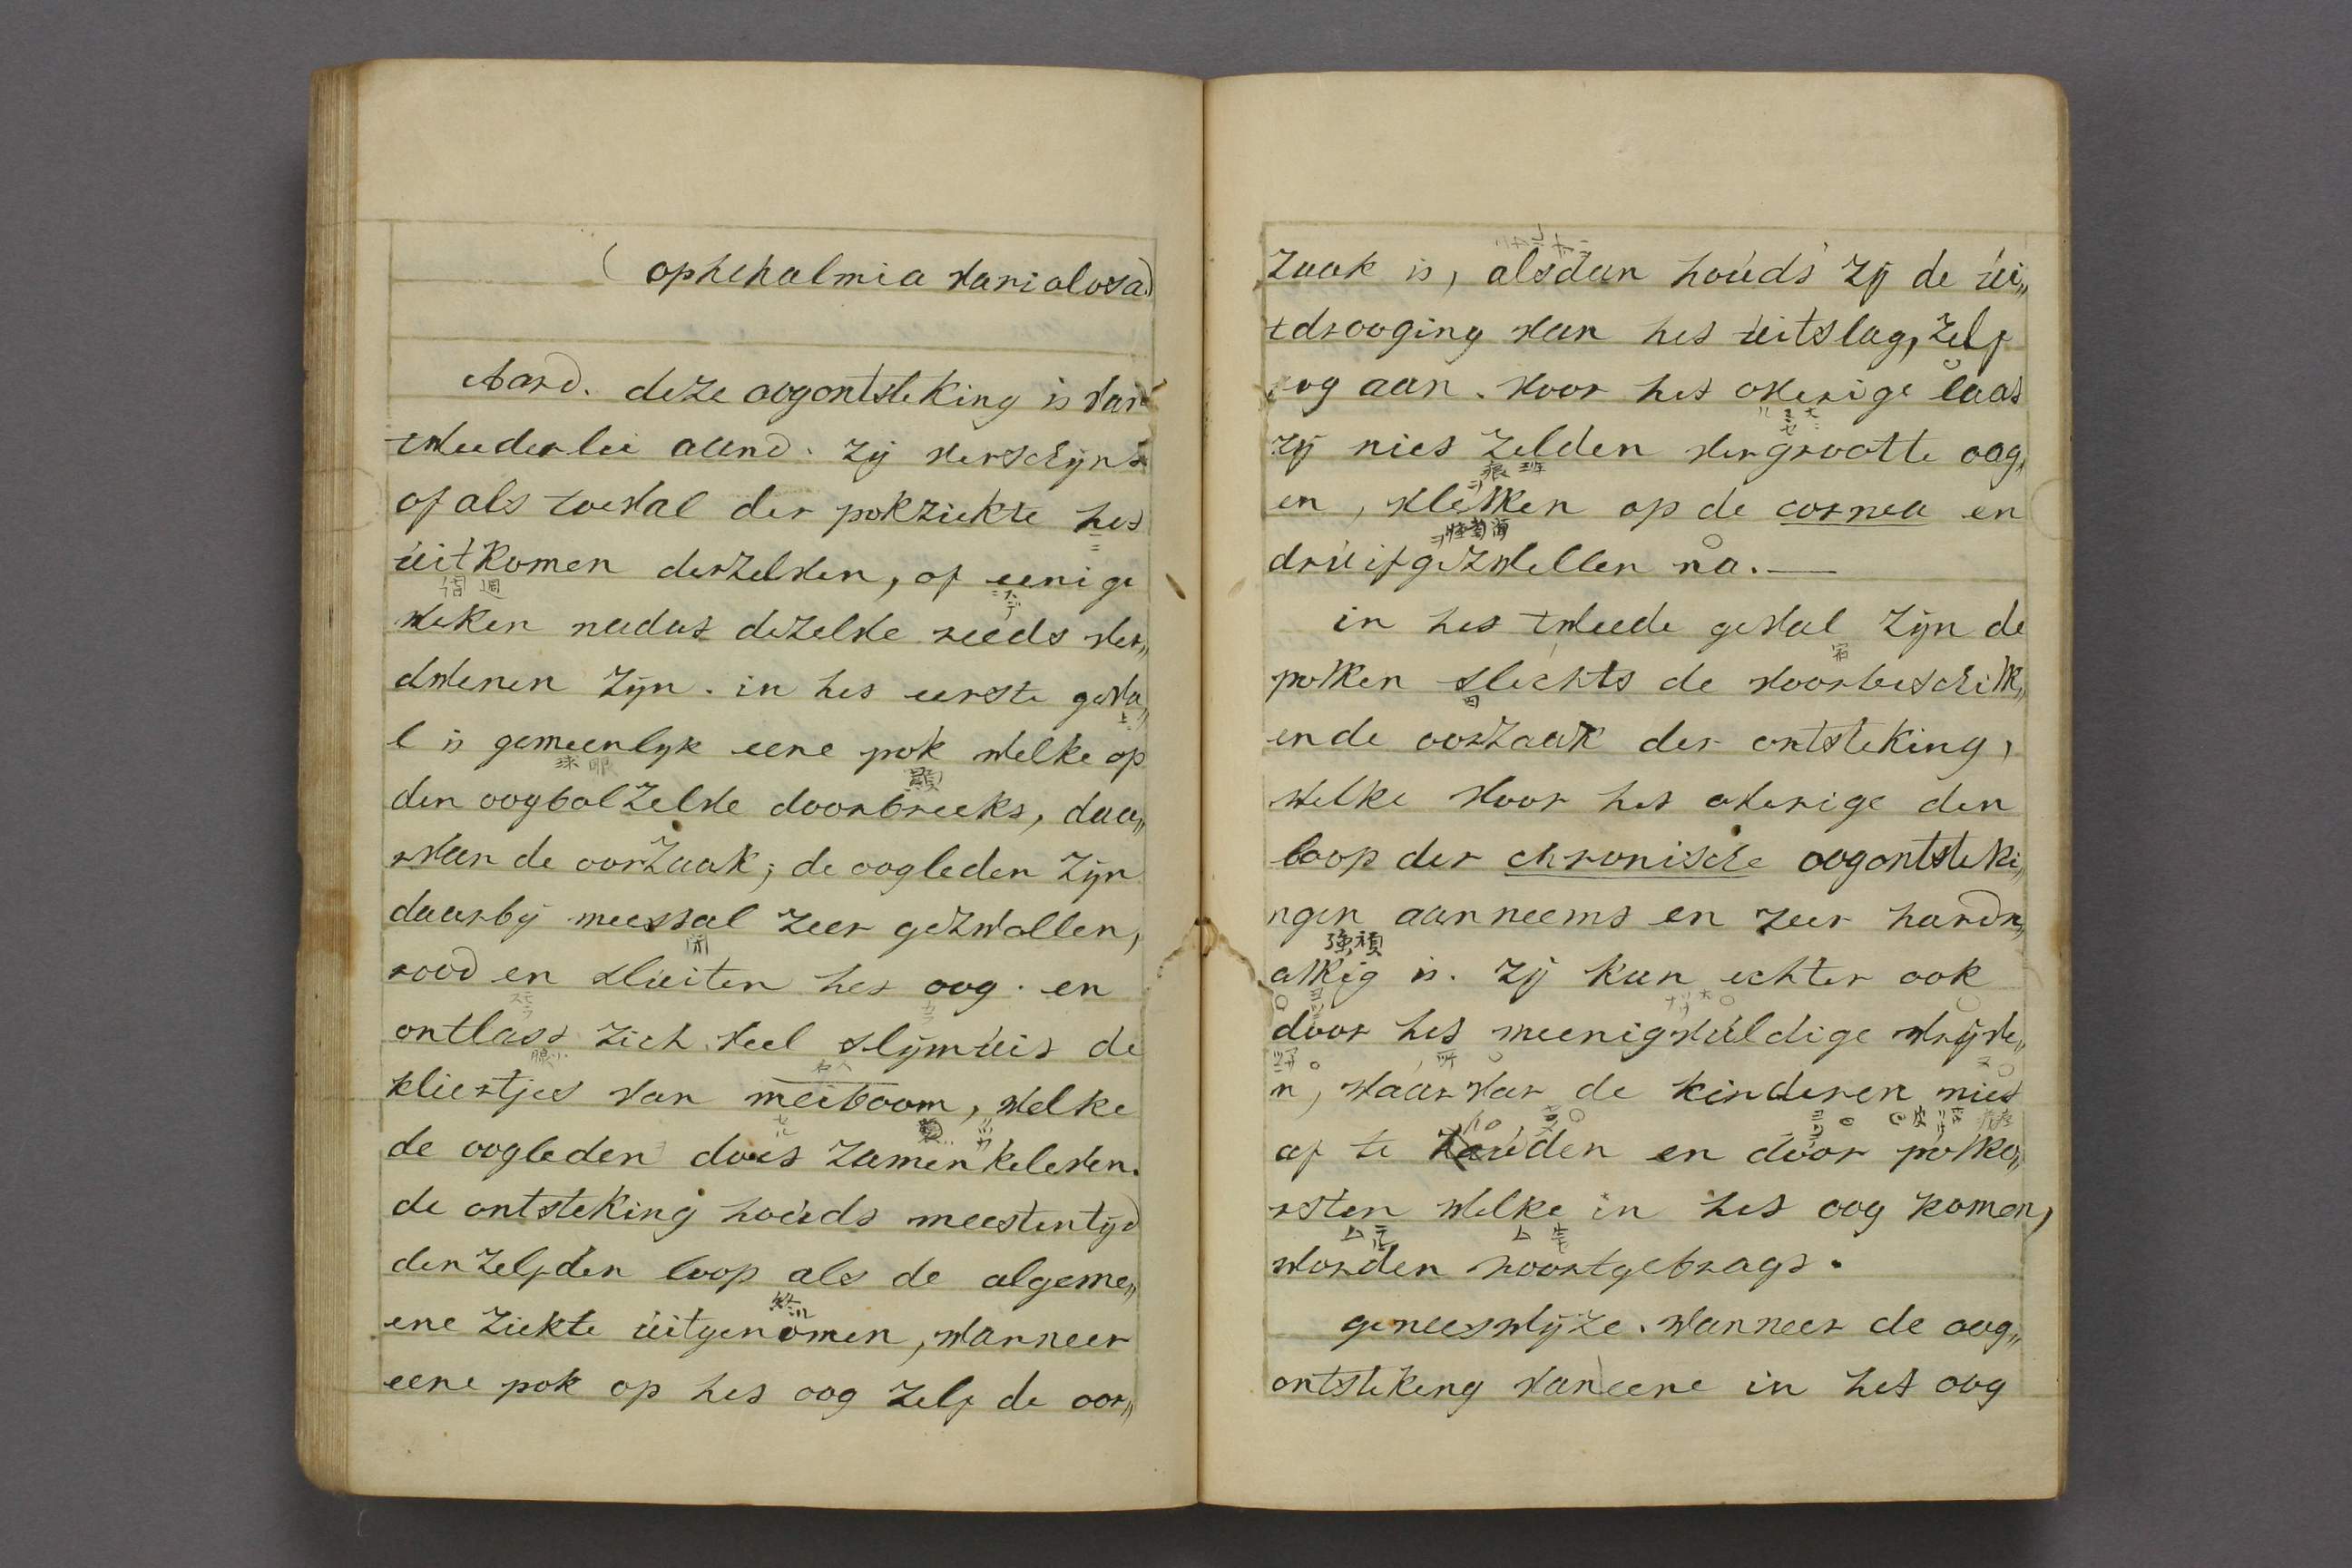 (ophthalmia variolosa)
Aard. deze oogontsteking is van
tweederlei aard. zij verschijnt
of als toeval der pokziekte het
uitkomen derzelven, of eenige
weken nadat dezelve reeds ver„
dwenen zijn. in het eerste geva„
l is gemeenlyk eene pok welke op
den oogbol zelve doorbreekt, daa„
rvan de oorzaak; de oogleden zijn
daarby meestal zeer gezwollen,
rood en sluiten het oog. en
ontlast zich veel slijmuit de
kliertjes van meiboom, welke
de oogleden doet zamenkeleven.
de ontsteking houdt meestentijd
denzelfden loop als de algeme„
ene ziekte uitgenomen, wanneer
eene pok op het oog zelf de oor„
zaak is, alsdan houdt zij de ui„
tdrooging van het uitslag, zelf
oog aan. voor het overige laat
zij niet zelden vergrootte oog„
en, vlekken op de cornea en
druifgezwellen na.—
in het tweede geval zijn de
pokken slechts de voorbeschikk„
ende oorzaak der ontsteking,
welke voor het overige den
loop der chronische oogontsteki„
ngen aanneemt en zeer hardn„
ekkig is. zij kan echter ook
door het meenigvuldige wrijve„
n, waarvan de kinderen niet
af te houden en door pokko„
rsten welke in het oog komen,
worden voortgebragt.
geneeswijze. wanneer de oog„
ontsteking van eene in het oog